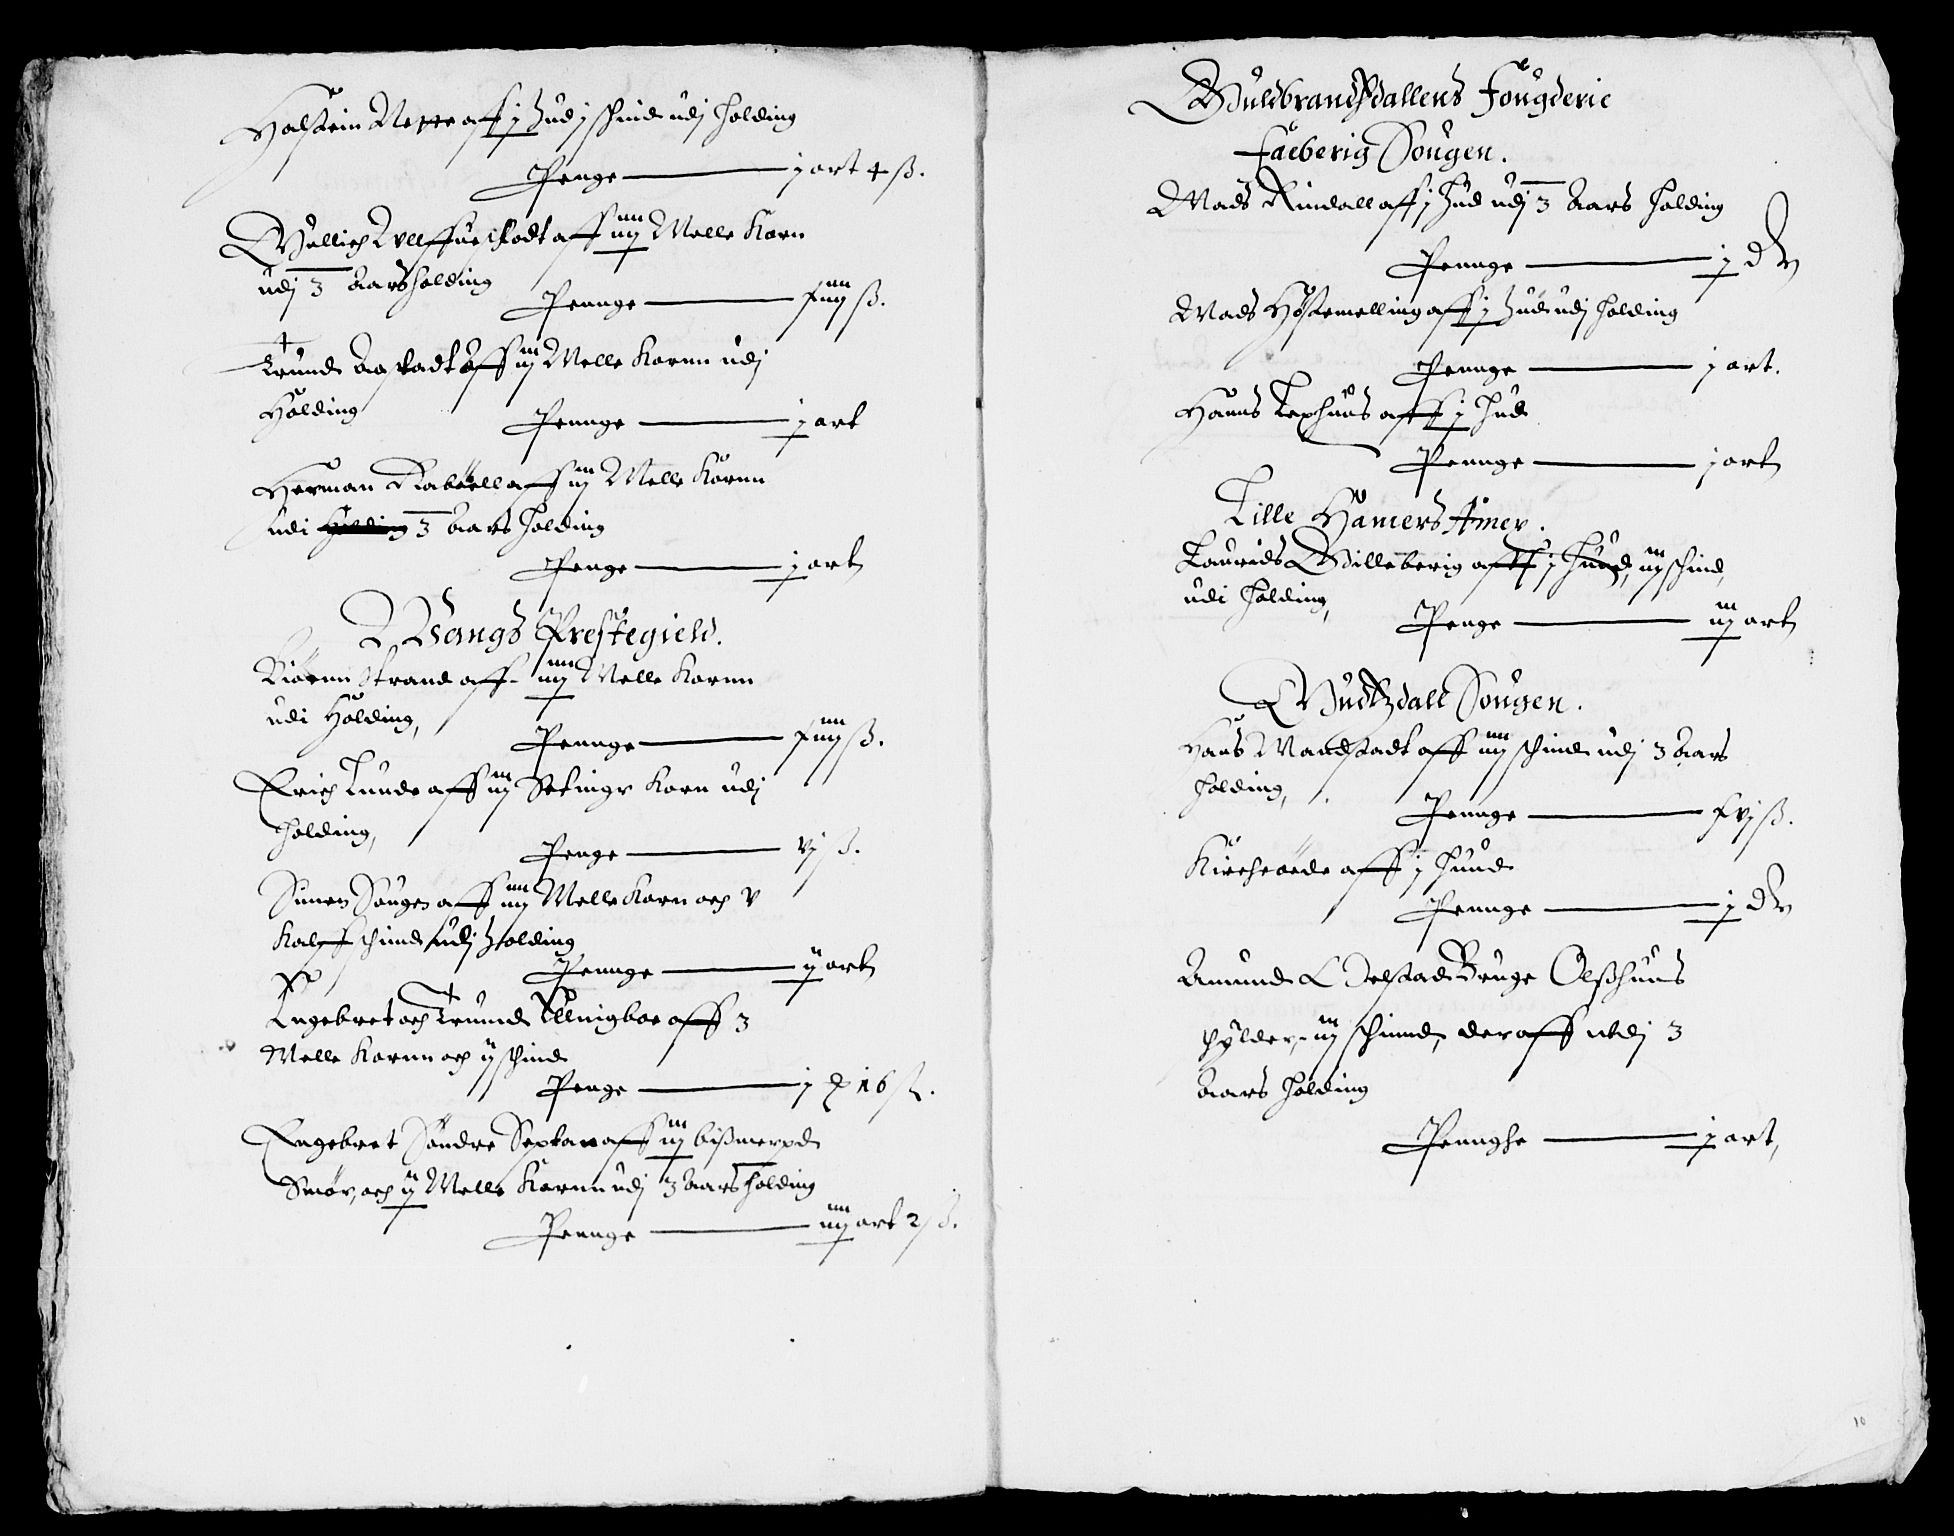 Halstein Neppe aff j Hud j schind udj holding
Penge — j ort 4 ß.
Gullich Ulffue stadt aff iiij Melle Korn
udj 3 Aars holding
Pennge — xiiij ß.
Trund Aastadt aff iij Melle Kornn udj
Holding
Pennge — j ort
Herman Rabøell aff iij Melle Kornn
udi 3 Aars holding
Penge — j ort
Wangs Prestegield.
Biørnn Strand aff iiij Melle Kornn
udi Holding,
Pennge — xiiij ß.
Erich Lunde aff iij Setingr Korn udj
holding,
Penge — vj ß.
Simen Sougen aff iiij Melle Korn och v
Kalff schind udj holding
Pennge — ij ort
Engebret och Trunnd Ellnigboe aff 3
Melle Kornn och ij schind
Penge — j 16 ß.
Engebret Søndre aff iij bißmerpd
Smør, och ij Melle Kornn udj 3 Aars holding
Pennge — iiij ort 2 ß.
Guldbrandsdallens Fougderie
Faeberig Sougen.
Mads Rindall aff j Hud udj 3 Aars holding
Pennge — j dlr
Mads Høstmelling aff j Hud udj holding
Pennge — j ort.
Hanns Lexhuus aff j Hud
Pennge — j ort
Lille Hamers Amer.
Laurids Gilleberig aff j Huud, iij schind,
udi holding,
Penge — iij ort
Gudtzdall Sougen.
Hans Mandstadt aff iiij schind udj 3 Aars
holding,
Pennge — xvj ß.
Kircheøede aff j Huud
Pennge — j dlr
Amund Odelstad Bruge Olßhuus
schylder, iij schinnd, deraff udj 3
Aars holding
Pennghe — j ort,
10